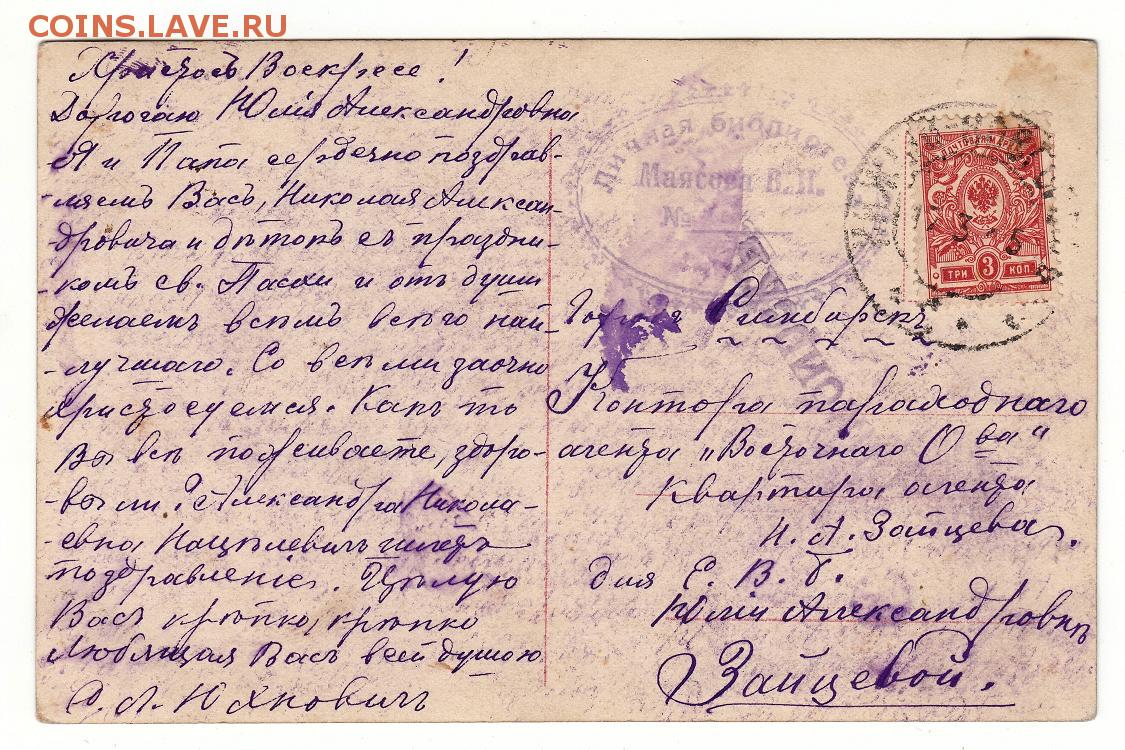 COINS.LAVE.RU
Христосъ Воскресе!
Дорогаю Юлія Александровна
Я и Папа сердечно поздрав-
-ляемъ Васъ, Николая Алексан-
-дровича и дѣтокъ съ праздни-
-комъ св. Пасхи и отъ души
Желаемъ всѣмъ всего най-
-лучшаго. Со всѣми заочно
христосуемся. Какъ то
Вы всѣ поживаете, здоро-
-вы ли? Александра Никола-
-евна шлетъ
поздравленіе. Цѣлую
Васъ крѣпко, крѣпко
Любящая Васъ всей душою
А. Юхновичъ
Личная библиотека
Маясова В.П.
№
ПОЧТОВАЯ МАРКА
ТРИ 3 КОП.
Городъ Симбирскъ
Контора пароходнаго
агента „Восточнаго О-ва"
Квартира агента
Н. А. Зайцева.
для Е. В. Б.
Юліи Александровнѣ
Зайцевой.